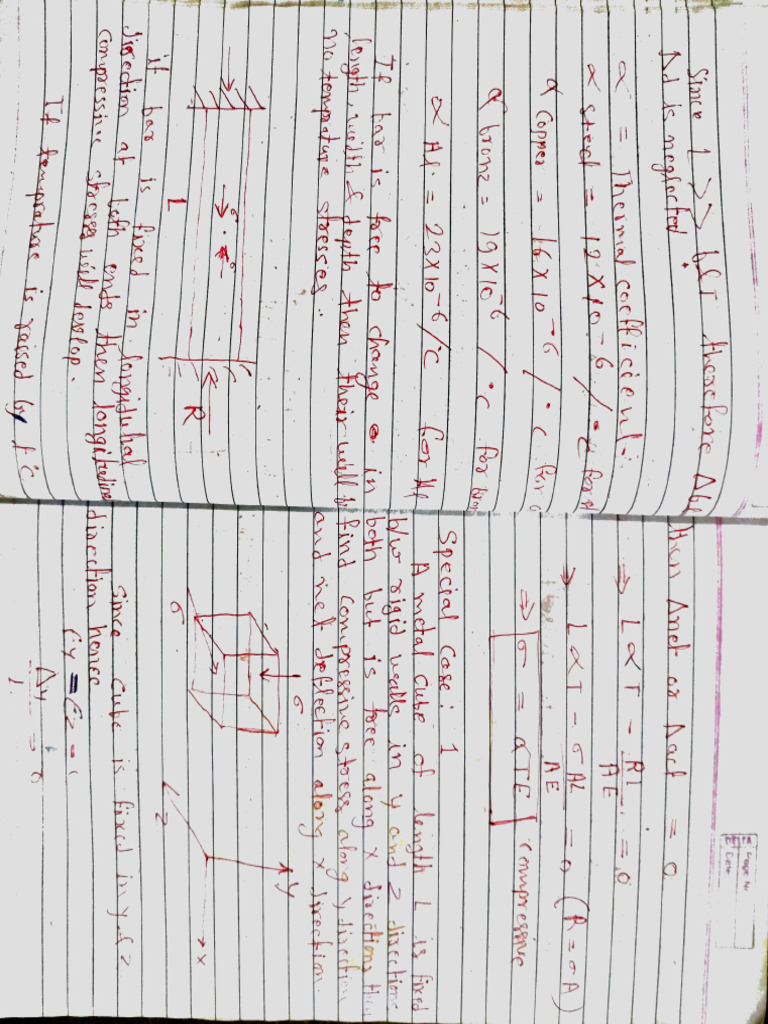 Since L >> b&T therefore Δb&
Δd is neglected.
α = Thermal coefficient:-
α steel = 12 × 10-6 /°c for
α Copper = 16×10-6 /°c for
α bronz = 19×10-6 /°c for
α Al. = 23×10-6/°C for Al
If bar is free to change in
length, width & depth then their will be
no temprature stresses.
σ σ
R
L
if bar is fixed in longitudnal
direction at both ends then longitudinal
compressive stresses will develop.
If temprature is raised by t°C
then Δnet or Δact = 0
⇒ LαT - RL/AE = 0
⇒ LαT - σAL/AE = 0 (R=σA)
⇒ σ = αTE compressive
Special Case: 1
A metal cube of length L is fixed
b/w rigid walls in y and z directions
both but is free along x directions then
find compressive stress along y direction
and net deflection along x direction.
σ
σ
y
x
z
Since cube is fixed in y & z
direction hence
Ey = Ez = 0
Δy = 0
Page No
Date